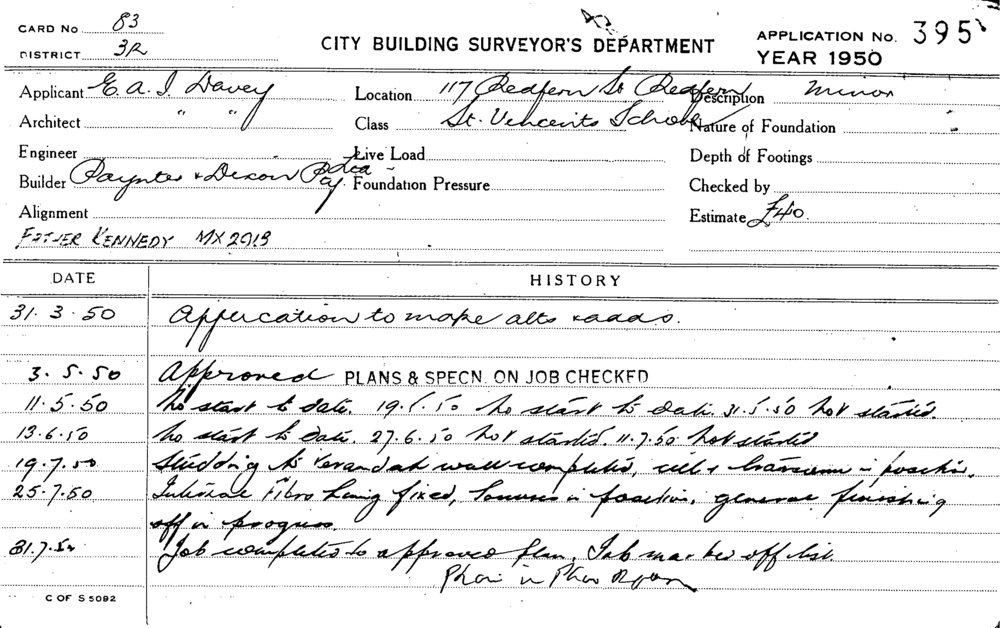 CARD No 83
DISTRICT 3R
CITY BUILDING SURVEYOR'S DEPARTMENT
APPLICATION No. 395
YEAR 1950
Applicant E. A. J. Davey
Location 117 Redfern St Redfern
Description Minor
Architect " "
Class St. Vincents School
Nature of Foundation
Engineer
Live Load
Depth of Footings
Builder Paynter & Dixon Pty Ltd
Foundation Pressure
Checked by
Alignment
Estimate £40.
FATHER KENNEDY MX 2913
DATE HISTORY
31.3.50 Application to make alts & adds.
3.5.50 Approved PLANS & SPECN. ON JOB CHECKED
11.5.50 No start to date. 19.5.50 No start to date. 31.5.50 Not started.
13.6.50 No start to date. 27.6.50 Not started. 11.7.50 Not started
19.7.50 Studding to verandah wall completed, sill & transom in position.
25.7.50 Internal Fibro being fixed, louvres in position, general finishing
off in progress.
31.7.50 Job completed to approved plan. Job marked off list.
C OF S 5092